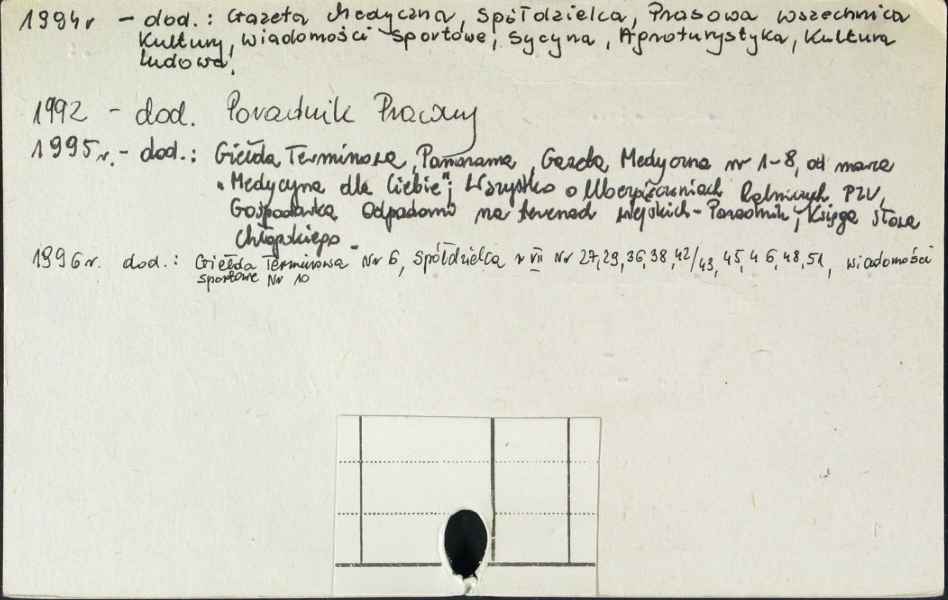 1994r - dod.: Gazeta Medyczna, Spółdzielca, Prasowa Wszechnica
Kultury, Wiadomości Sportowe, Sycyna, Agroturystyka, Kultura
Ludowa,
1992 - dod. Poradnik Prawny
1995r. - dod.: Giełda Terminowa, Panorama, Gazeta Medyczna nr 1-8, od marca
"Medycyna dla Ciebie"; Wszystko o Ubezpieczeniach Rolniczych PZU,
Gospodarka Odpadami na terenach wiejskich-Poradnik, Księga Słowa
Chłopskiego -
1996r. dod.: Giełda Terminowa Nr 6, Spółdzielca VII Nr 27,29,36,38,42/43,45,46,48,51, Wiadomości
Sportowe Nr 10